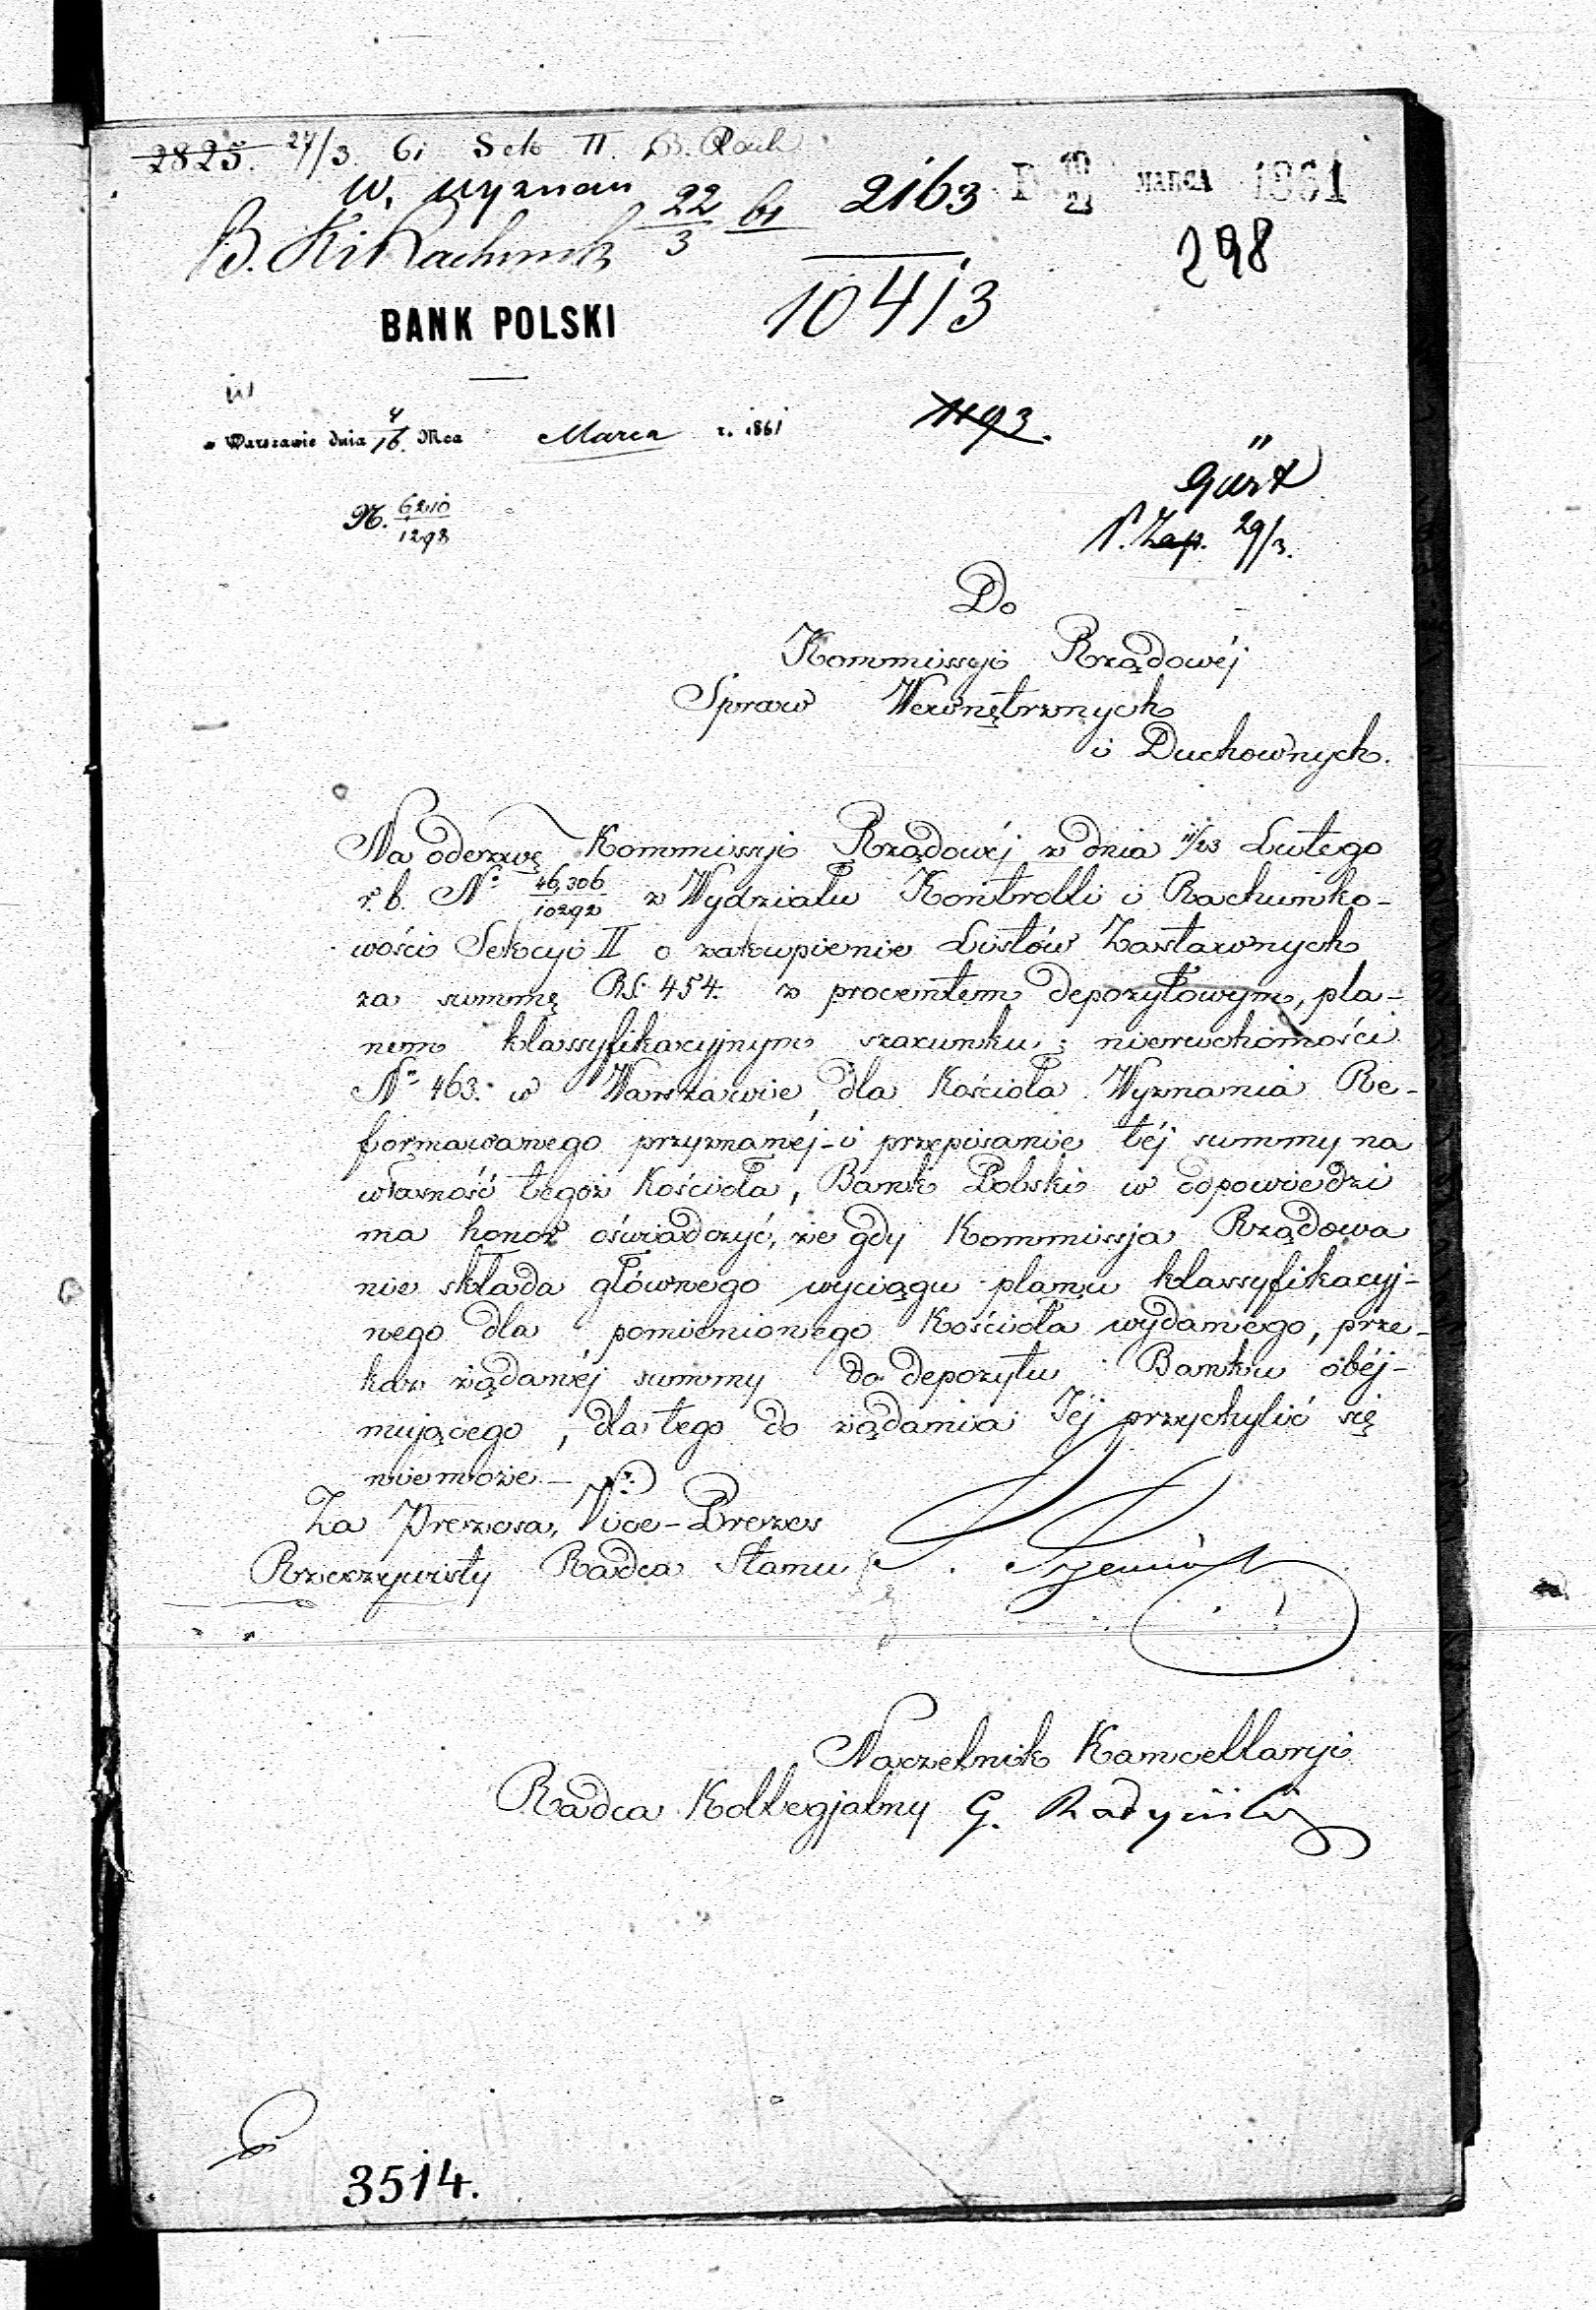 2825. 27/3 61 Sek II. B. Rach
W. wyznan 22/3 61 2163 10/23 MARCA 1861
298
10413
BANK POLSKI
w Warszawie dnia 4/16. Mca Marca r. 1861
1193.
N. 6210/1298
29/3.
Do
Kommissyi Rządowéj
Spraw Wewnętrznych
i Duchownych.
Na odezwę Kommissyi Rządowéj z dnia 11/23 Lutego
r. b. No 46,306/10292 z Wydziału Kontrolli i Rachunko-
wości Sekcyi II o zakupienie Listów Zastawnych
za summę RS. 454. z procentem depozytowym, pla-
nem klassyfikacyjnym szacunku nieruchomości
No 463. w Warszawie dla Kościoła Wyznania Re-
formowanego przyznanéj i przepisanie téj summy na
własność tegoż Kościoła, Bank Polski w odpowiedzi
ma honor oświadczyć, że gdy Kommissja Rządowa
nie składa głównego wyciągu planu klassyfikacyj-
nego dla pomienionego Kościoła wydanego, prze-
kaz żądanéj summy do depozytu Banku obéj-
mującego, dla tego do żądania Jéj przychylić się
niemoże.
Za Prezesa, Vice-Prezes
Rzeczywisty Radca Stanu
Naczelnik Kancellaryi
Radca Kollegjalny G.
3514.